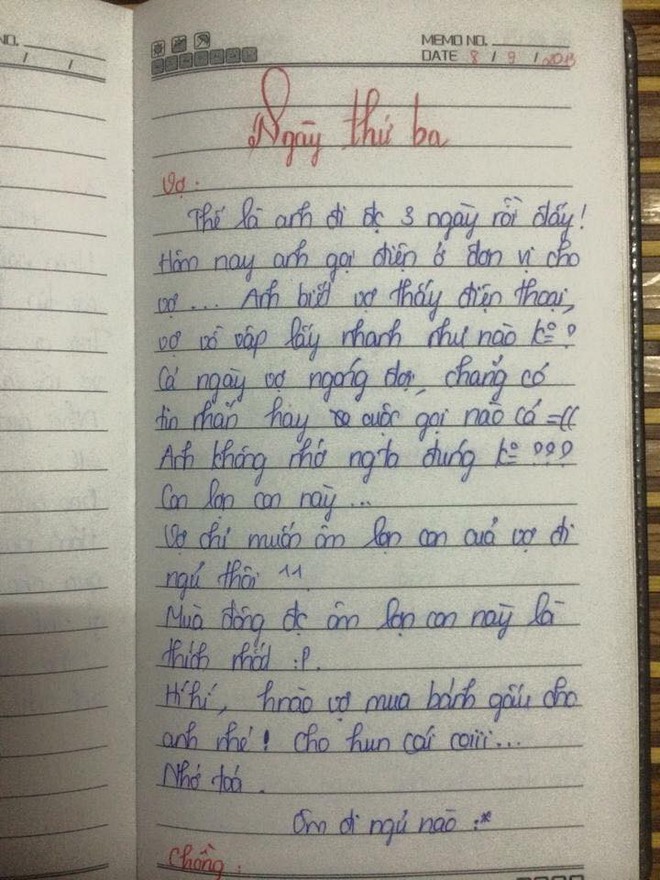 NO.
/ /
MEMO NO.
DATE 8 / 9 / 2013
Ngày thứ ba
Vợ :
Thế là anh đi đc 3 ngày rồi đấy!
Hôm nay anh gọi điện ở đơn vị cho
vợ ... Anh biết vợ thấy điện thoại,
vợ vồ vập lấy nhanh như nào k°?
Cả ngày vợ ngóng đợi, chẳng có
tin nhắn hay cuộc gọi nào cả =((
Anh không nhớ ngta đúng k° ???
Con lợn con này ...
Vợ chỉ muốn ôm lợn con của vợ đi
ngủ thôi ^^
Mùa đông đc ôm lợn con này là
thích nhất :P.
Híhí, hnào vợ mua bánh gấu cho
anh nhé! Cho hun cái coiii...
Nhớ toá.
Ôm đi ngủ nào :*
Chồng :